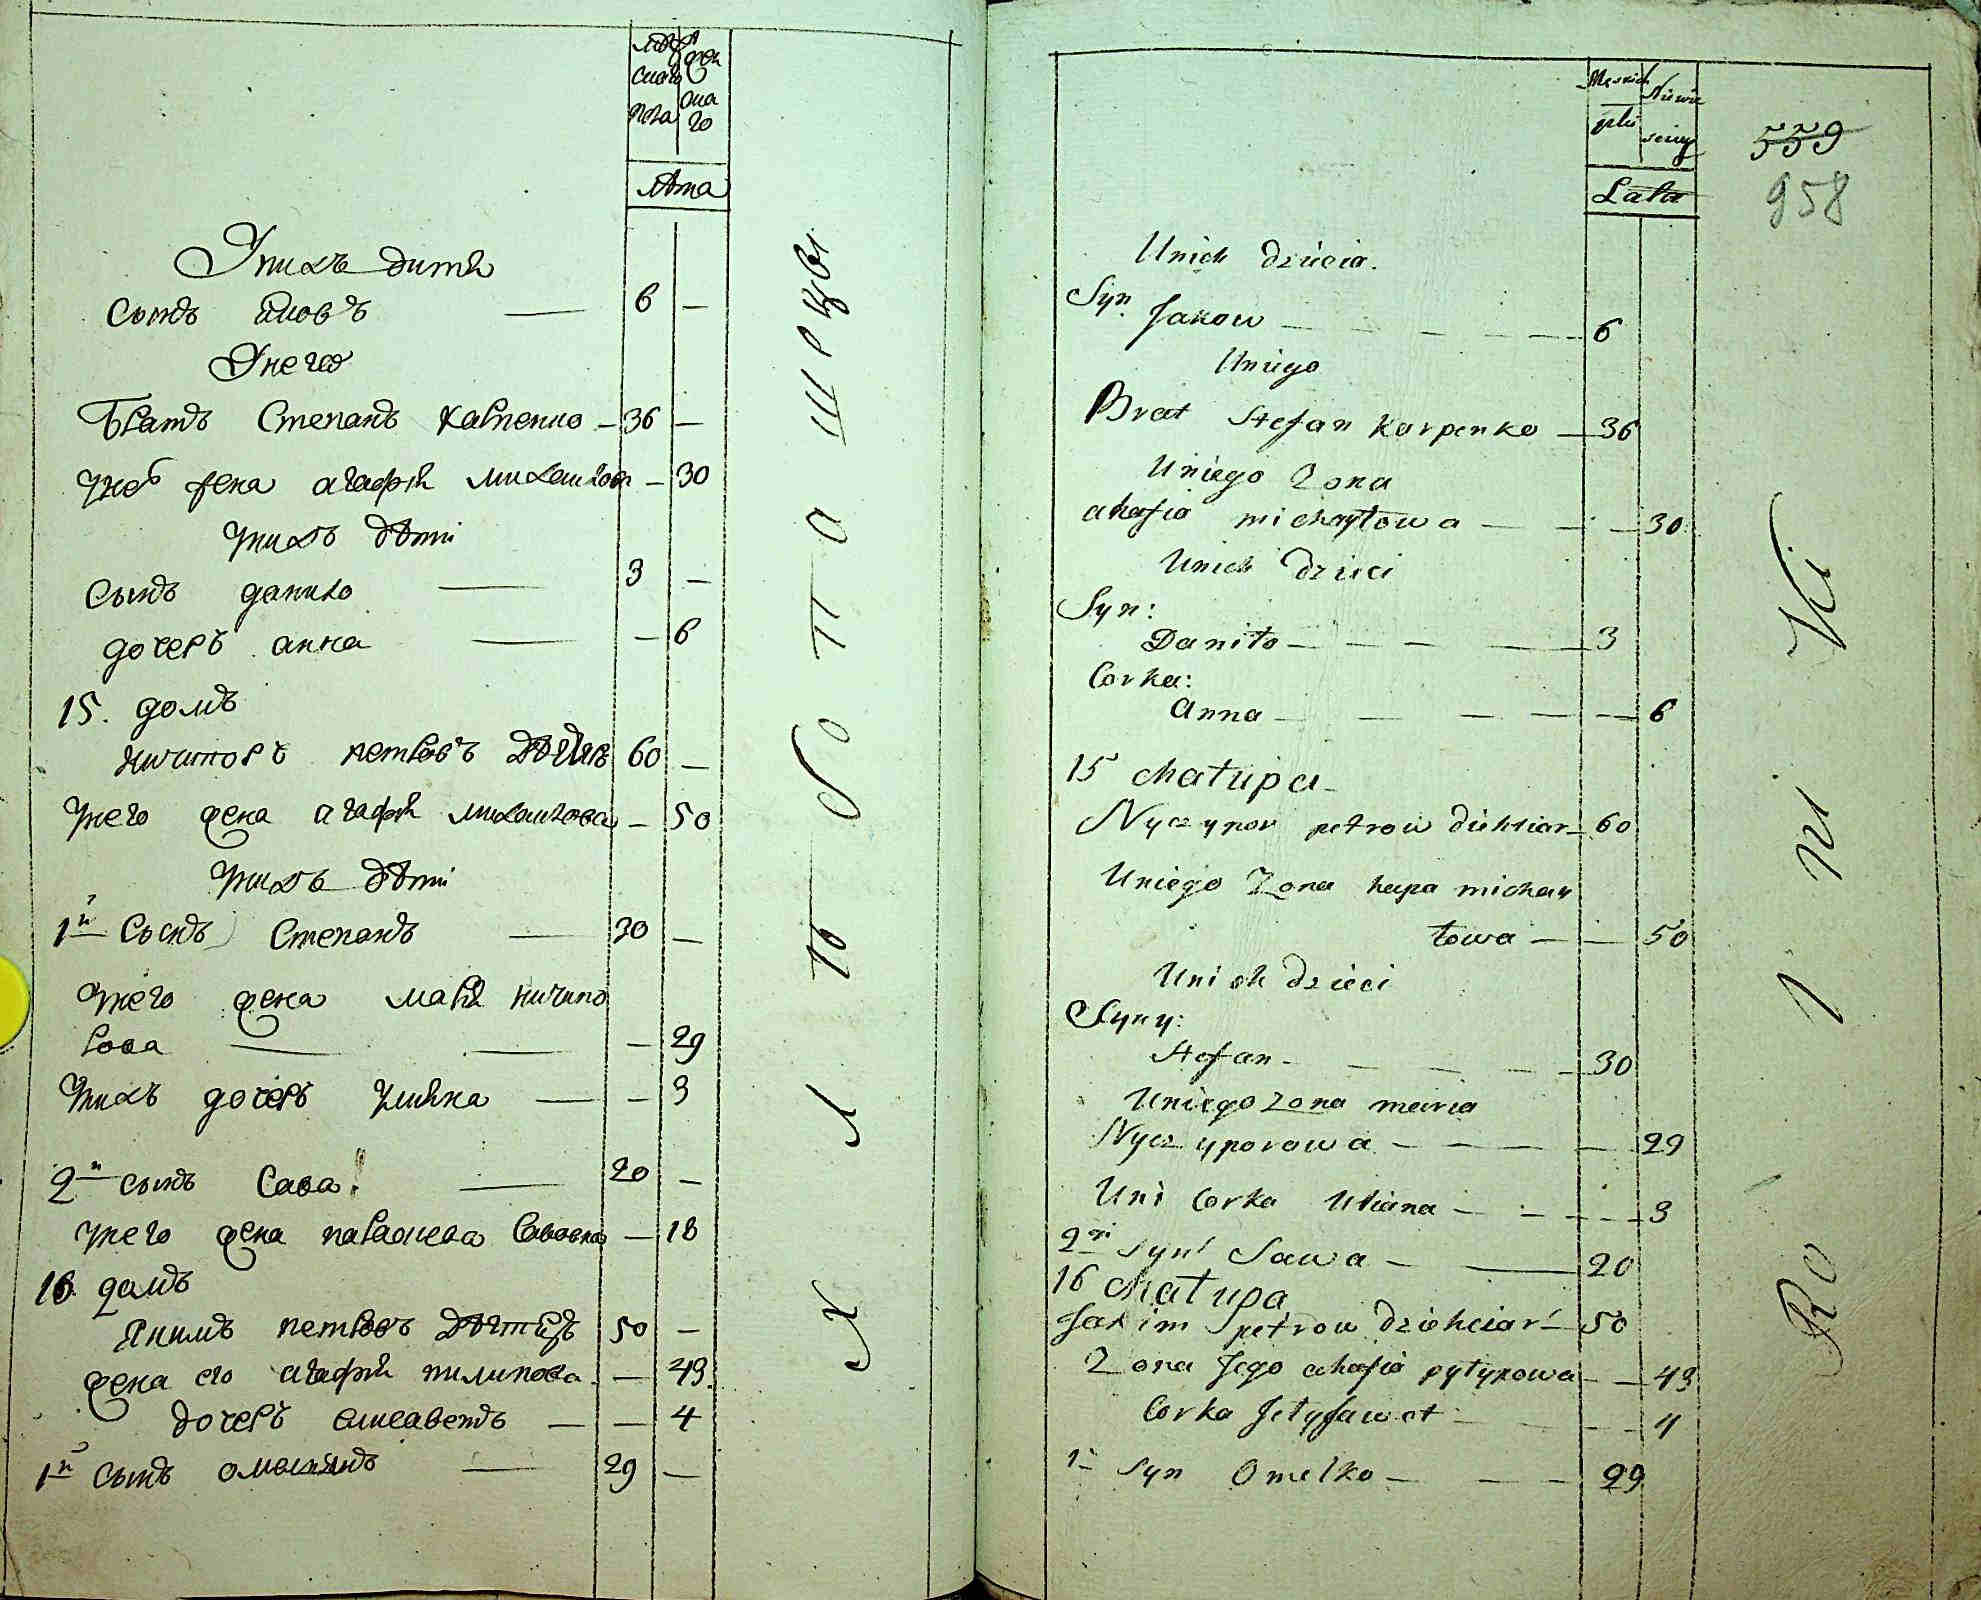 мужескаго пола
женскаго
лѣта
Унихъ дитя
сынъ Яковъ — 6 —
Унего
Братъ Степанъ Карпенко — 36 —
унего жена агафія михайлова — 30
унихъ дѣти
сынъ данило — 3 —
дочеръ анна — — 6
15. домъ
ничипоръ петровъ 60 —
унего жена агафія михайлова — 50
унихъ дѣти
1й сынъ Степанъ — 30 —
унего жена марія ничипо
рова — — — 29
унихъ дочеръ улияна — — 3
2й сынъ Сава — 20 —
унего жена параскева Савовна — 18
16. домъ
Якимъ петровъ 50 —
жена его агафія пилипова — 49
дочеръ елисаветъ — — 4
1й сынъ омельянъ — 29 —
ХЛѢБОПАШРЦЫ
Męskich płci
Niewie sciey
Lata
559
958
Unich dziecia.
Syn.
Jakow — — — — 6
Uniego
Brat Stefan Karpenko — 36
Uniego Zona
ahafia michayłowa — — — 30
Unich dzieci
Syn:
Daniło — — — — 3
Corka:
Anna — — — — — 6
15 chałupa
Nyczypor petrow diehciar — 60
Uniego Zona hapa michay
łowa — — 50
Unich dzieci
Syny:
Stefan — — — — 30
Uniego zona maria
Nyczyporowa — — — — 29
Uni Corka Uliana — — — — 3
2i Syn Sawa — — 20
16 chałupa
Jakim petrow dziehciar — 50
Zona Jego ahafia pyłypowa — — 49
Corka Jełyfawet — — — 4
1i Syn Omelko — — — 29
Rolniki